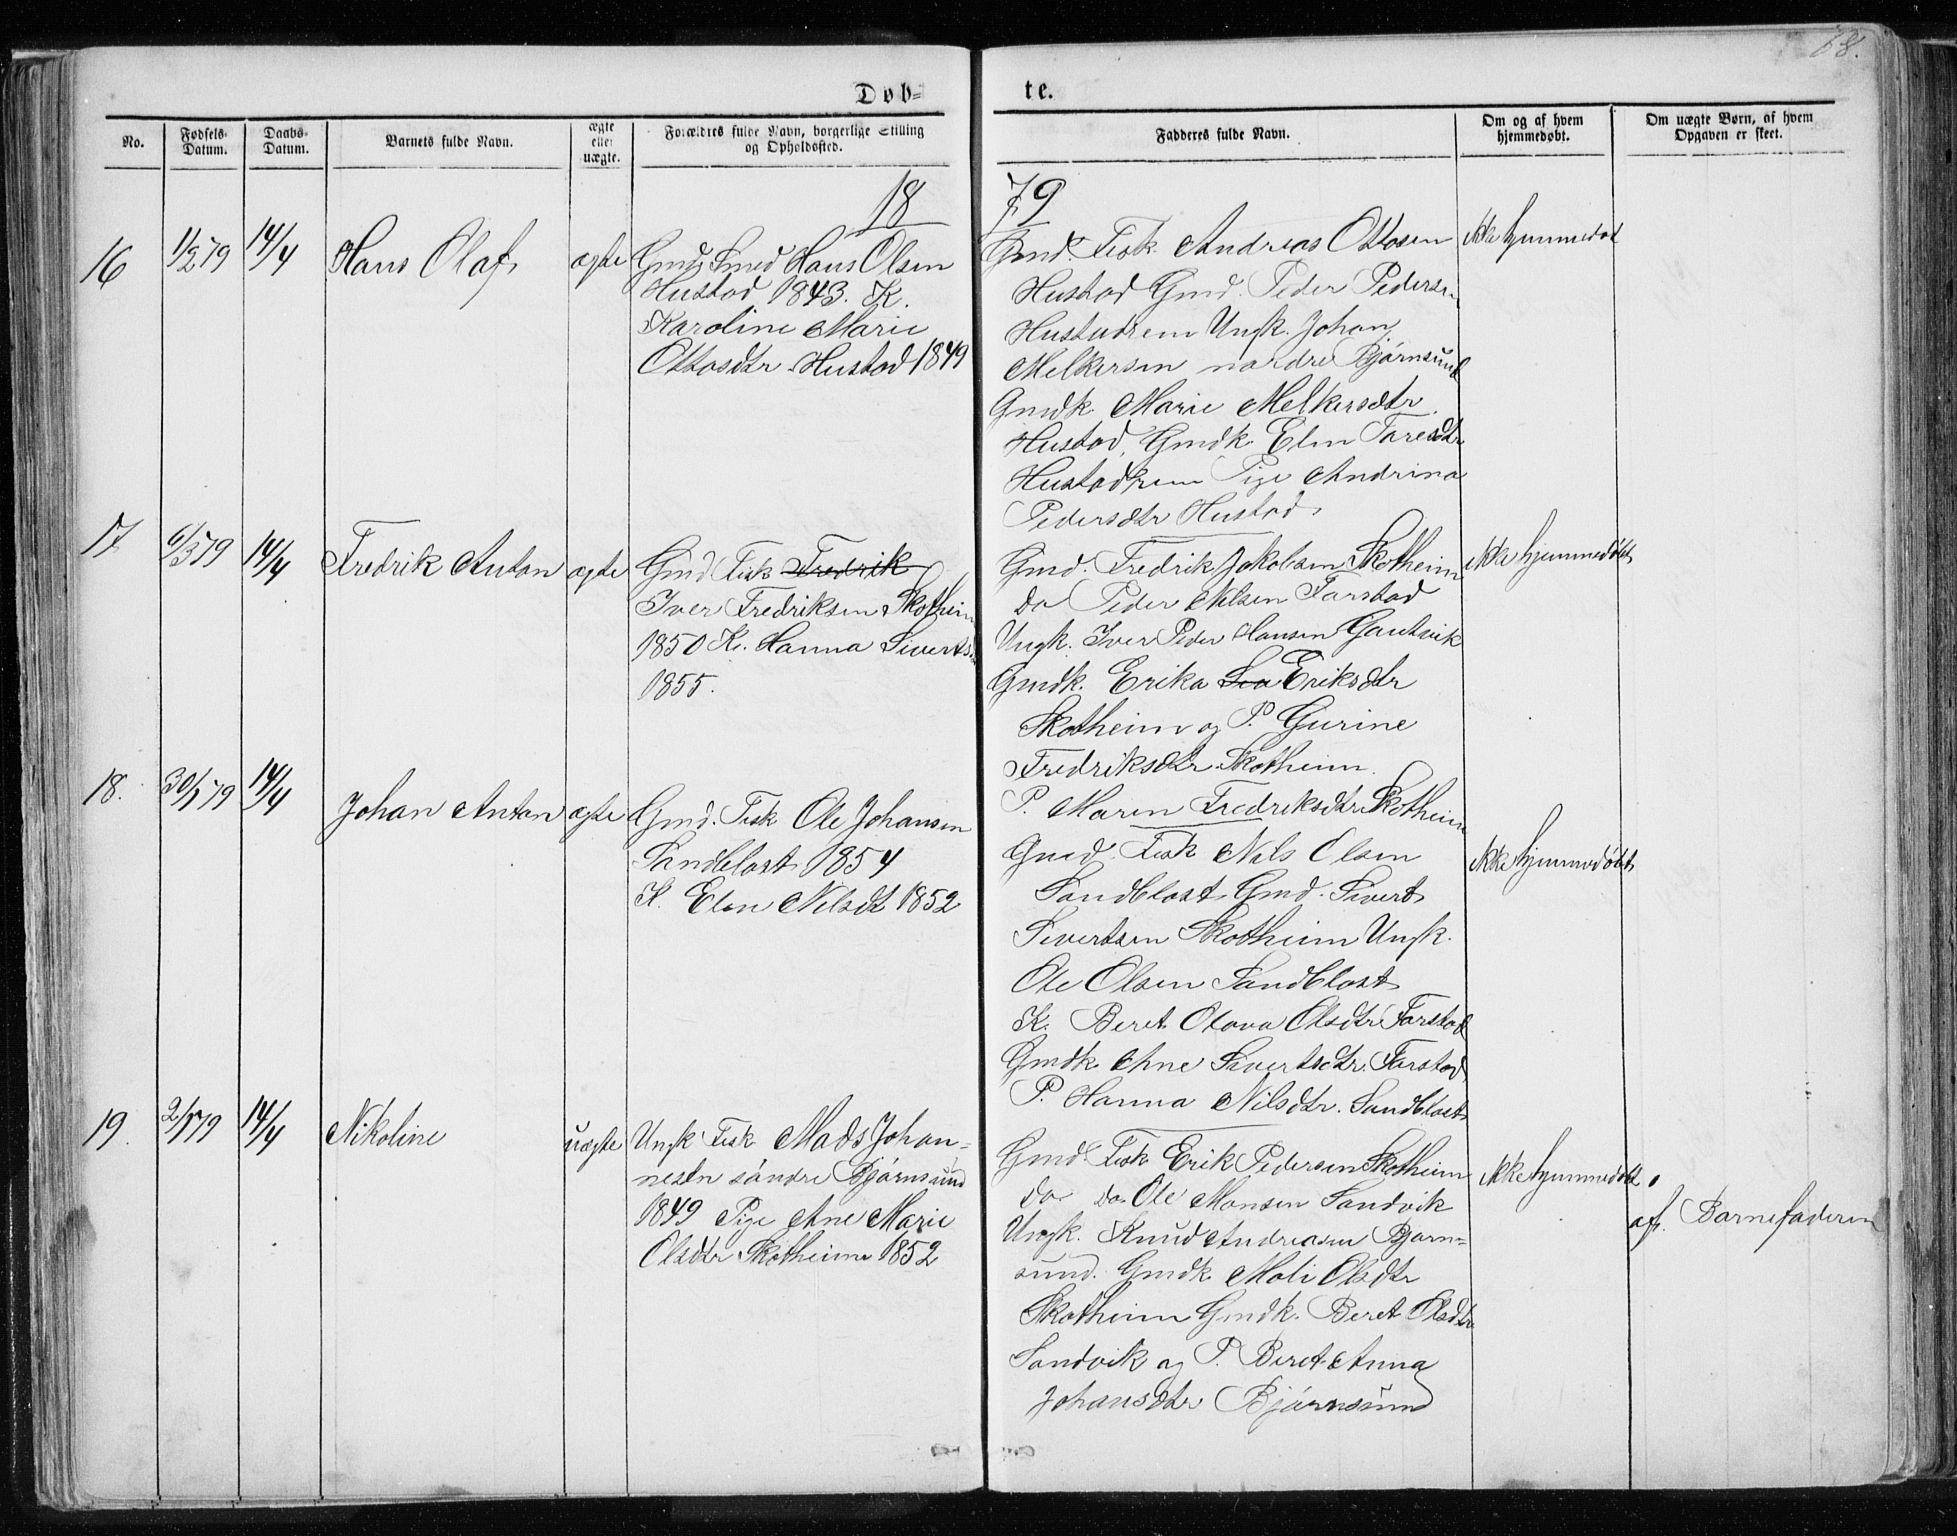 68.
Døb-
te.
No.
Fødsels-
Datum.
Daabs-
Datum.
Barnets fulde Navn.
ægte
eller
uægte.
Forældres fulde Navn, borgerlige Stilling
og Opholdssted.
Fadderes fulde Navn.
Om og af hvem
hjemmedøbt.
Om uægte Børn, af hvem
Opgaven er skeet.
18
79
16
1/2 79
14/4
Hans Olaf
ægte
Gmd Smed Hans Olsen
Hustad 1843. K.
Karoline Marie
Ottosdtr Hustad 1849
Gmd. Fisk Andreas Ottosen
Hustad Gmd. Peder Pedersen
Hustadrem Ungk. Johan
Melkersen nordre Bjørnsund
Gmdk. Marie Melkersdtr.
Hustad, Gmdk. Elen Taresdtr
Hustadrem Pige Andrina
Pedersdtr Hustad
ikke hjemmedøbt
17
6/3 79
14/4
Fredrik Anton
ægte
Gmd Fisk Fredrik
Iver Fredriksen Skotheim
1850 K. Hanna Sivertsd
1855.
Gmd. Fredrik Jakobsen Skotheim
do Peder Nilsen Farstad
Ungk. Iver Peder Hansen Gautvik
Gmdk. Erika Eriksdtr
Skotheim og P. Gurine
Fredriksdtr Skotheim.
P. Maren Fredriksdtr Skotheim
ikke hjemmedøbt
18.
30/1 79
14/4
Johan Anton
ægte
Gmd. Fisk Ole Johansen
Sandblost 1854
K. Elen Nilsdt 1852
Gmd. Fisk Nils Olsen
Sandblost Gmd. Sivert
Sivertsen Skotheim Ungk.
Ole Olsen Sandblost
K. Beret Olava Olsdtr Farstad
Gmdk Ane Sivertsdtr. Farstad
P. Hanna Nilsdtr. Sandblost
ikke hjemmedøbt
19.
2/1 79
14/4
Nikoline
uægte
Ungk Fisk Mads Johan-
nesen søndre Bjørnsund
1849 Pige Ane Marie
Olsdtr Skotheim 1852
Gmd Fisk Erik Pedersen Skotheim
do do Ole Monsen Sandvik
Ungk. Knud Andreasen Bjørn-
sund. Gmdk Mali Olsdtr
Skotheim Gmdk. Beret Olsdtr
Sandvik og P. Beret Anna
Johansdtr Bjørnsund
ikke hjemmedøbt
af. Barnefaderen